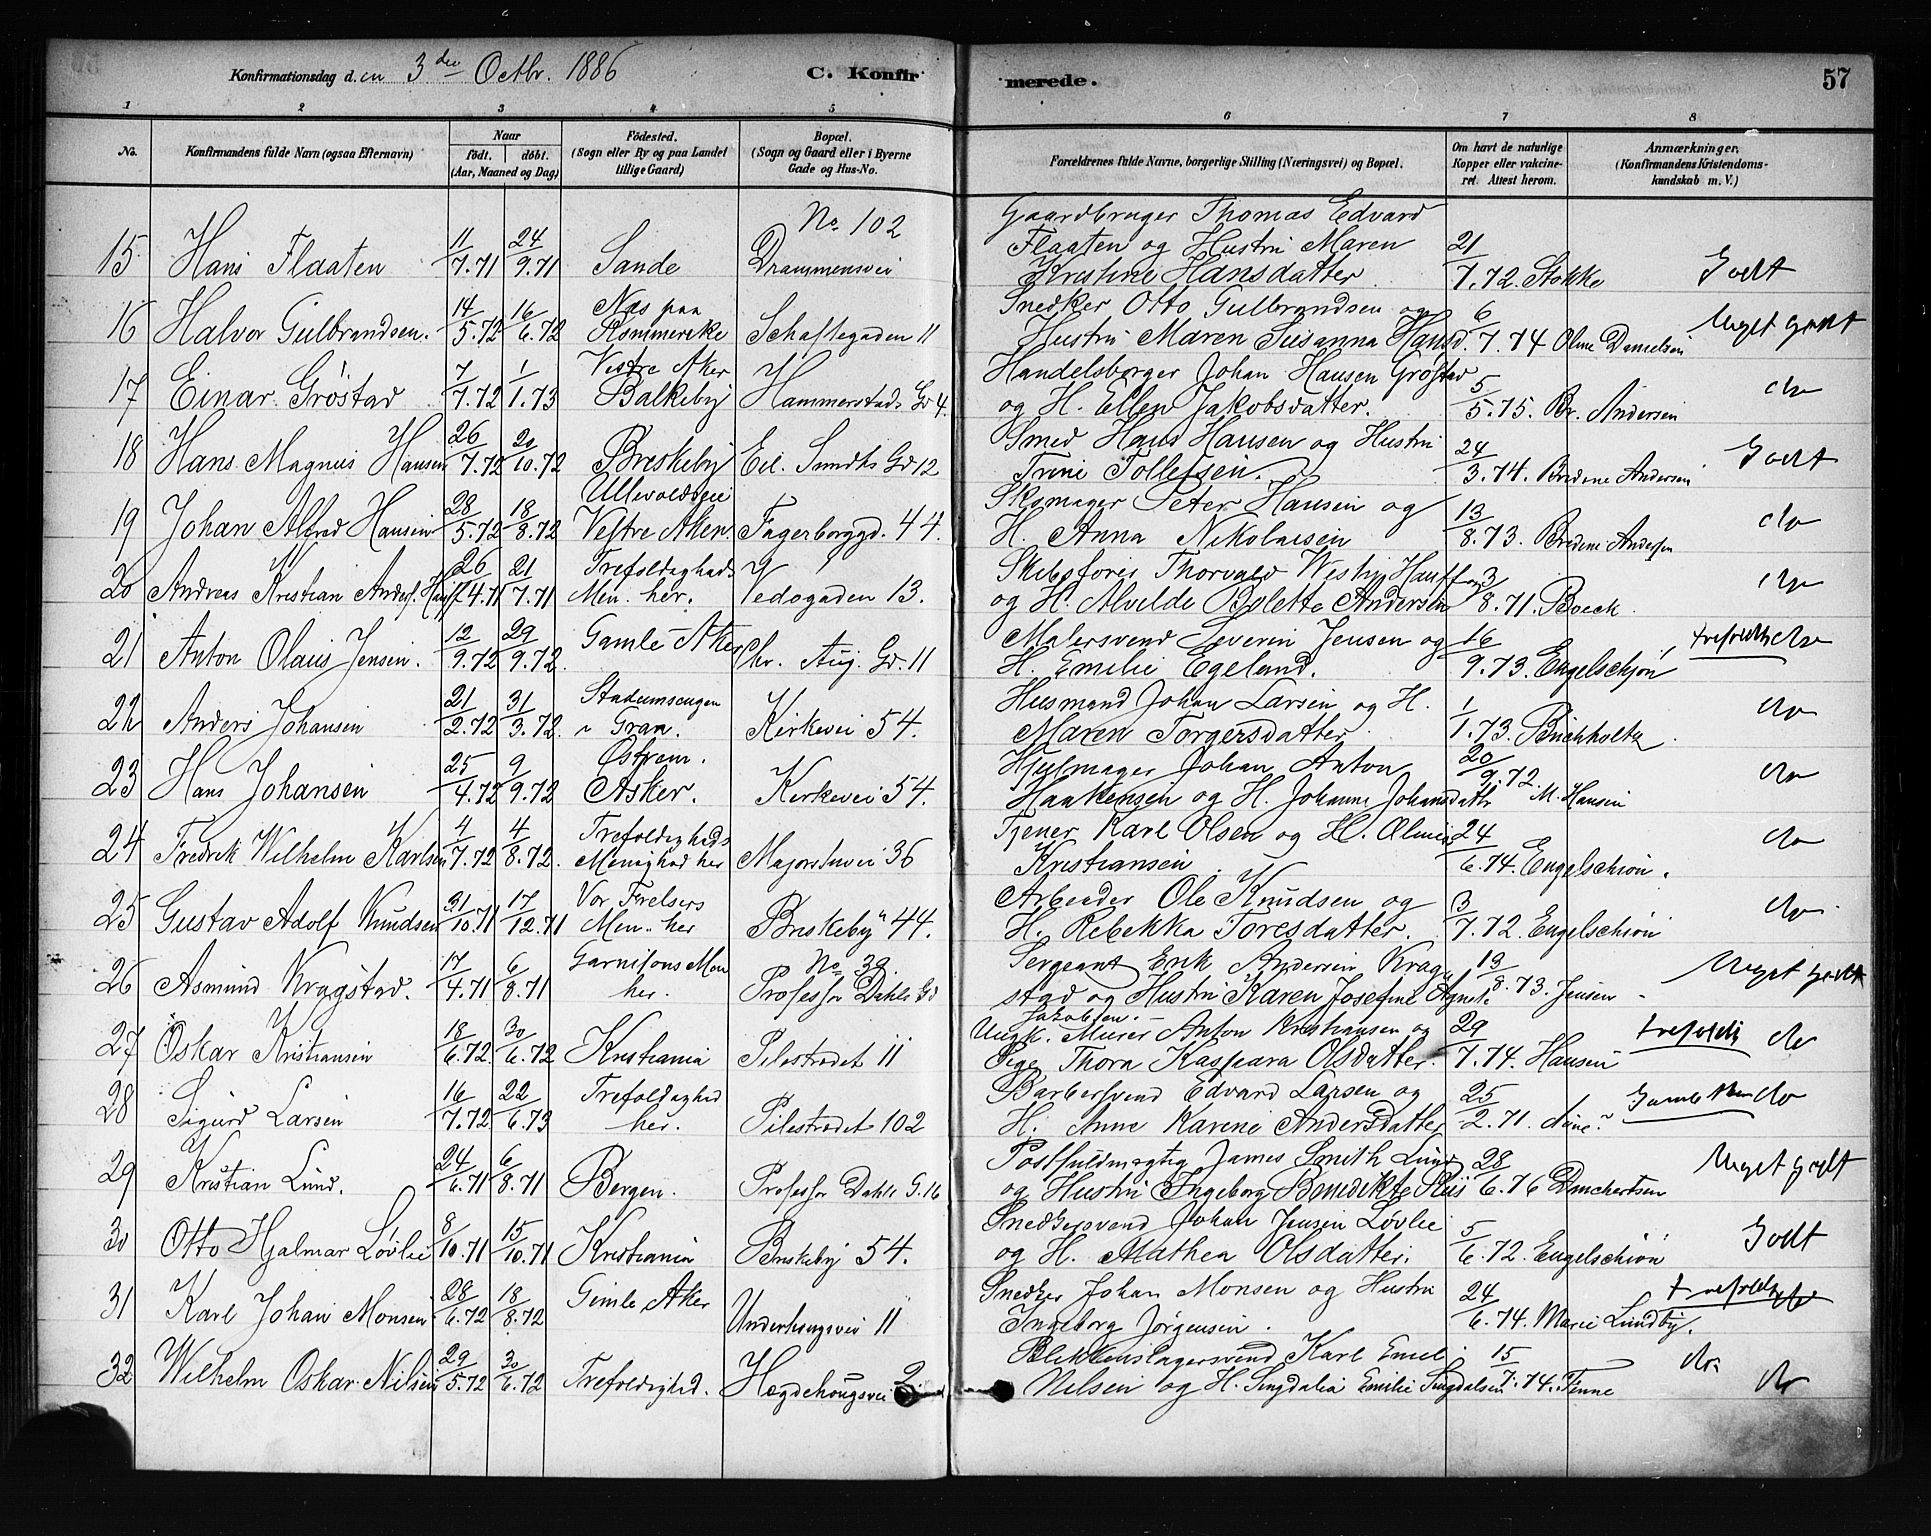 Konfirmationsdag d.en 3die Octbr. 1886 C. Konfirmerede. 57
1 2 3 4 5 6 7 8
No. Konfirmandens fulde Navn (ogsaa Efternavn) Naar født. døbt. (Aar, Maaned og Dag) Fødested. (Sogn eller By og paa Landet tillige Gaard) Bopæl. (Sogn og Gaard eller i Byerne Gade og Hus-No. Forældrenes fulde Navne, borgerlige Stilling (Næringsvei) og Bopæl. Om havt de naturlige Kopper eller vakcineret. Attest herom. Anmærkninger. (Konfirmandens Kristendomskundskab m. V.)
15 Hans Flaaten 11/7.71 24/9.71 Sande No. 102 Drammensvei
Gaardbruger Thomas Edvard
Flaaten og Hustru Maren
Kristine Hansdatter 21/7.72. Stokke Godt
16 Halvor Gulbrandsen. 14/5.72 16/6.72 Næs paa Rommerike Schaftegaden 11
Snedker Otto Gulbrandsen og
Hustru Maren Susanna Hansd. 6/7.74 Oline Danielsen Meget godt
17 Einar Grøstad 7/7.72 1/1.73 Vestre Aker Balkeby Hammerstads Gd 4.
Handelsborger Johan Hansen Grøstad
og H. Ellen Jakobsdatter. 5/5.75. Br. Andersen do
18 Hans Magnus Hansen 26/7.72 20/10.72 Briskeby Eil. Sundts Gd 12
Smed Hans Hansen og Hustru
Trine Tollefsen. 24/3.74. Bredine Andersen Godt
19 Johan Alfred Hansen 28/5.72 18/8.72 Ullevoldsvei Vestre Aker. Fagerborggd. 44.
Skomager Peter Hansen og
H. Anna Nikolaisen 13/8.73. Bredine Andersen do
20 Andreas Kristian Anders. Hauff 26/4.71 21/7.71 Trefoldigheds Men. her. Vedogaden 13.
Skibsfører Thorvald Westye Hauff
og H. Alvilde Bolette Andersen 3/8.71. Boeck. do
21 Anton Olaus Jensen. 12/9.72 29/9.72. Gamle Aker Chr. Aug. Gd. 11
Malersvend Severin Jensen og
H. Emilie Egeland. 16/9.73. Engelschjøn do
22 Anders Johansen 21/2.72 31/3.72. i Gran. Kirkevei 54.
Husmand Johan Larsen og H.
Maren Torgersdatter 1/1.73. Buchholtz do
23 Hans Johansen 25/4.72 9/9.72 Østrem. Asker. Kirkevei 54.
Hjulmager Johan Anton
Haakensen og H. Johanne Johansdattr 20/9.72. M. Hansen do
24 Fredrik Wilhelm Karlsen 4/7.72 4/8.72. Trefoldigheds Menighed her Majorstuvei 36
Tjener Karl Olsen og H. Olmine
Kristiansen 24/6.74. Engelschiøn. do
25 Gustav Adolf Knudsen 31/10.71 17/12.71 Vor Frelsers Men. her Briskeby 44.
Arbeider Ole Knudsen og
H. Rebekka Toresdatter. 3/7.72. Engelschiøn do
26 Asmund Kragstad. 17/4.71 6/8.71 Garnisons Men her. No 39. Professor Dahls Gd
Sergeant Erik Andersen Krag
stad og Hustru Karen Josefine Agnet.
Jakobsen. 13/8.73. Jensen Meget godt
27 Oskar Kristiansen 18/6.72 30/6.72 Kristiania Pilestrædet 11
Ungk. Murer Anton Kristiansen og
Pige Thora Kaspara Olsdatter. 29/7.74. Hansen trefoldi do
28 Sigurd Larsen 16/7.72 22/6.73 Trefoldighed her. Pilestrædet 102
Barbersvend Edvard Larsen og
H. Anne Karine Andersdatter 25/2.71. do
29 Kristian Lund. 24/6.71 6/8.71 Bergen. Professor Dahls G. 16
Postfuldmægtig James Smith Lund
og Hustru Ingeborg Benedikte Sluis 28/6.76 Danchertsen Meget godt
30 Otto Hjalmar Løvlie 8/10.71 15/10.71 Kristiania Briskeby 54.
Snedkersvend Johan Jensen Løvlie
og H. Mathea Olsdatter. 5/6.72. Engelschiøn Godt
31 Karl Johan Monsen 28/6.72 18/8.72 Gimle Aker Underhaugsvei 11
Snedker Johan Monsen og Hustru
Ingeborg Jørgensen. 24/6.74. Marie Lundby. do
32 Wilhelm Oskar Nilsen 29/5.72 30/6.72 Trefoldighed. Hegdehaugsvei 2.
Blikkenslagersvend Karl Emil
Nilsen og H. Singdalia Emilie Singdalsen 15/7.74. Finne do